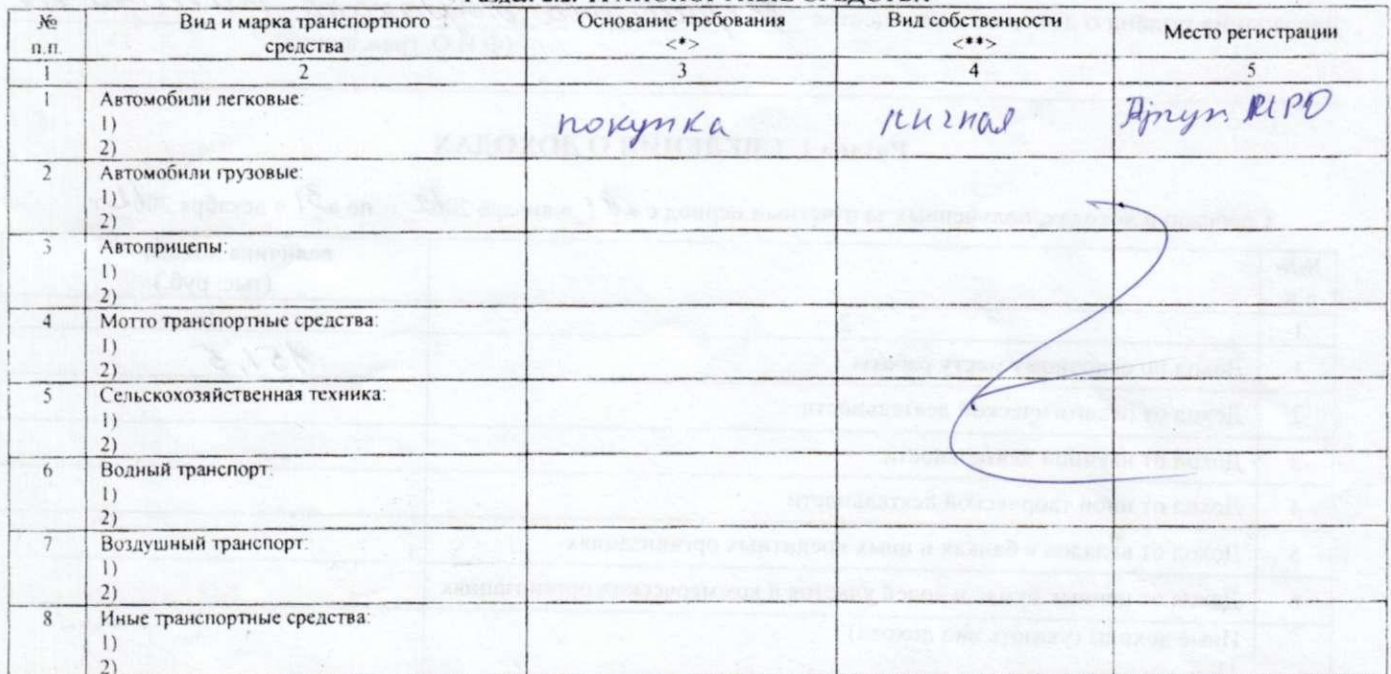 № п.п. Вид и марка транспортного средства Основание требования <*> Вид собственности <**> Место регистрации
1 2 3 4 5
1 Автомобили легковые: покупка личная МРО
1)
2)
2 Автомобили грузовые:
1)
2)
3 Автоприцепы:
1)
2)
4 Мотто транспортные средства:
1)
2)
5 Сельскохозяйственная техника:
1)
2)
6 Водный транспорт:
1)
2)
7 Воздушный транспорт:
1)
2)
8 Иные транспортные средства:
1)
2)